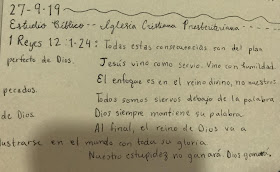 27-9-19
Estudio Bíblico -- Iglesia Cristiana Presbiteriana ----
1 Reyes 12:1-24: Todas estas consecuencias son del plan
perfecto de Dios. Jesús vino como servio. Vino con humildad.
El enfoque es en el reino divino, no nuestros
pecados.
Todos somos siervos debajo de la palabra
de Dios. Dios siempre mantiene su palabra.
Al final, el reino de Dios va a
lustrarse en el mundo con toda su gloria.
Nuestro estupidez no ganará. Dios ganará.